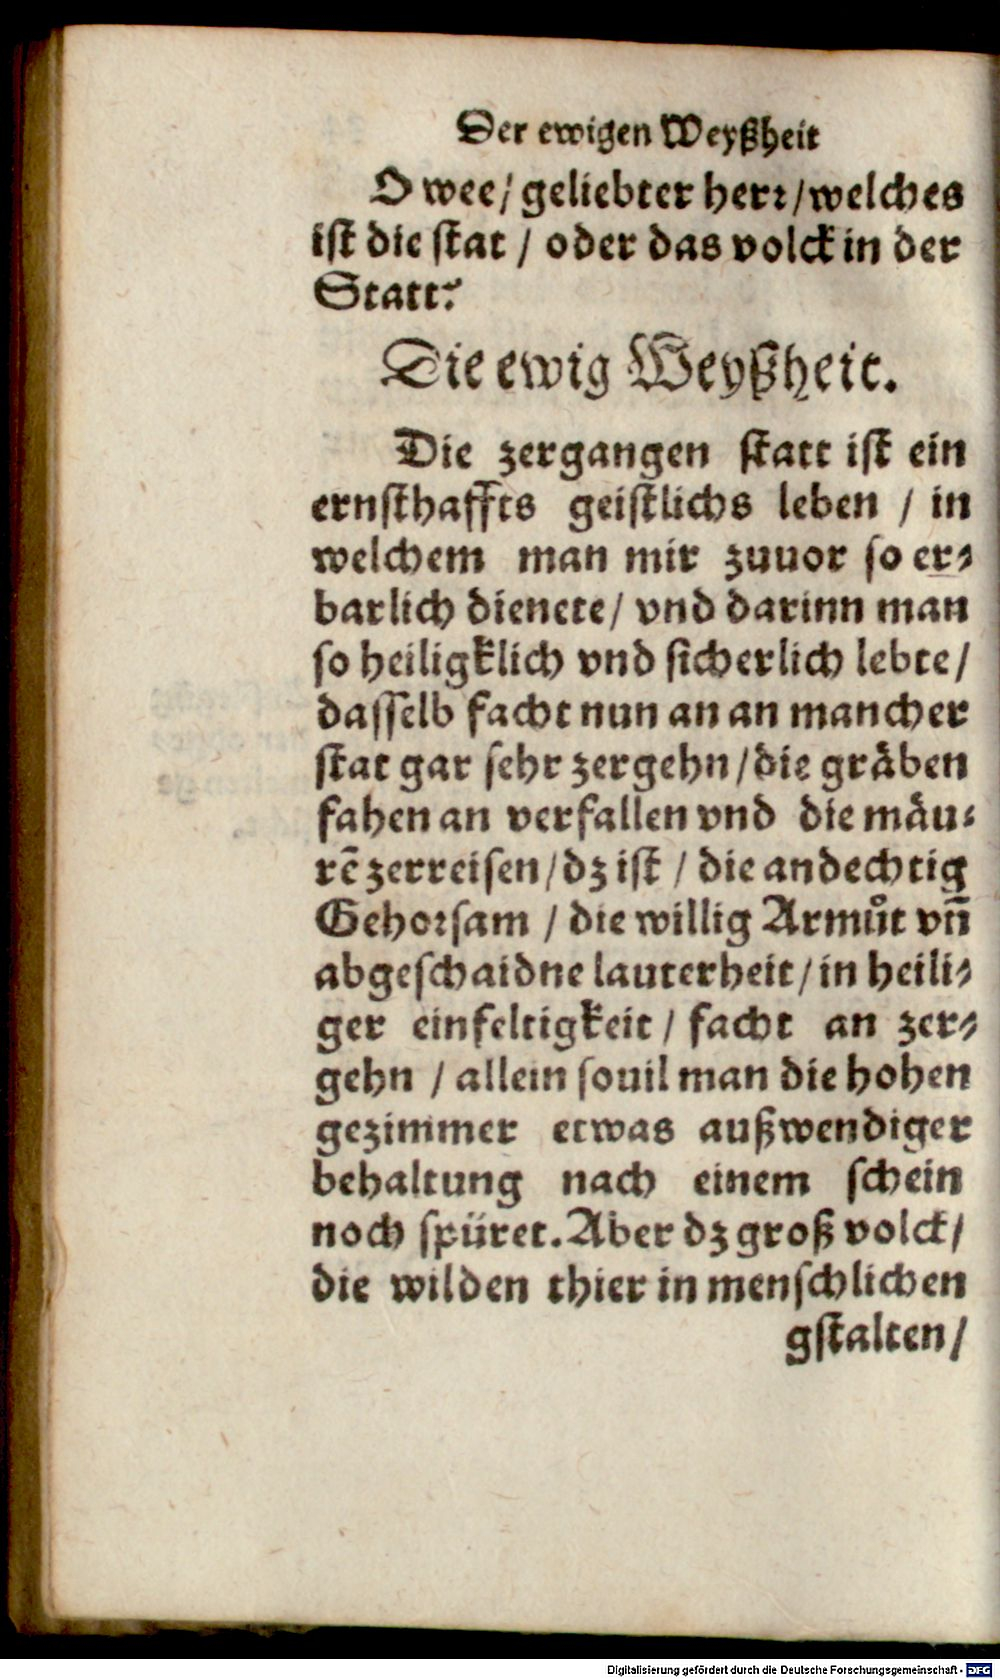 Der ewigen Weyßheit
O wee / geliebter herꝛ / welches
iſt die ſtat / oder das volck in der
Statt?
Die ewig Weyßheit.
Die zergangen ſtatt iſt ein
ernſthaffts geiſtlichs leben / in
welchem man mir zuuor ſo er⸗
barlich dienete / vnd darinn man
ſo heiligklich vnd ſicherlich lebte /
daſſelb facht nun an an mancher
ſtat gar ſehr zergehn / die gräben
fahen an verfallen vnd die mäu⸗
rẽ zerreiſen / dz iſt / die andechtig
Gehoꝛſam / die willig Armůt vñ
abgeſchaidne lauterheit / in heili⸗
ger einfeltigkeit / facht an zer⸗
gehn / allein ſouil man die hohen
gezimmer etwas außwendiger
behaltung nach einem ſchein
noch ſpüret. Aber dz groß volck /
die wilden thier in menſchlichen
gſtalten /
Digitalisierung gefördert durch die Deutsche Forschungsgemeinschaft - DFG